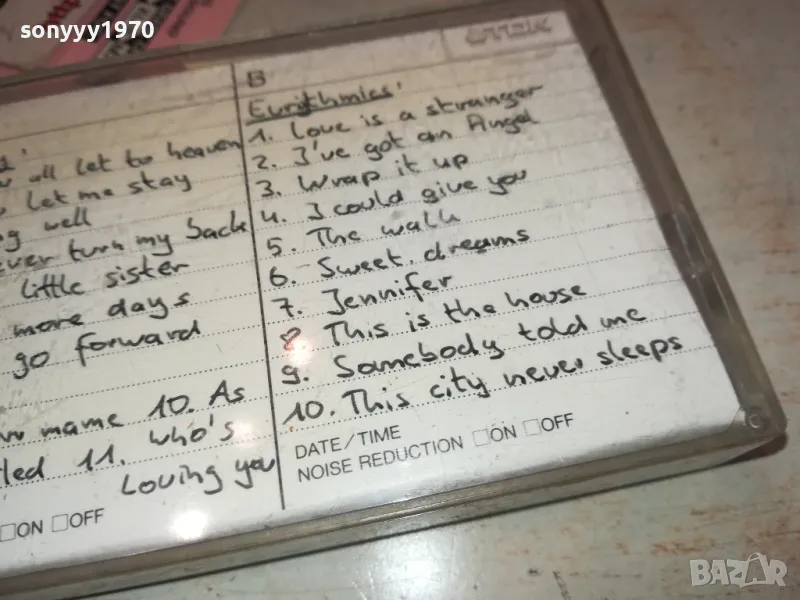 sonyyy1970
TDK
all let to heaven
let me stay
well
ever turn my back
little sister
more days
go forward
name 10. As
led 11. who's
Loving you
ON OFF
B
Eurithmics'
1. Love is a stranger
2. I've got an Angel
3. Wrap it up
4. I could give you
5. The walk
6. Sweet dreams
7. Jennifer
8 This is the house
9. Somebody told me
10. This city never sleeps
DATE/TIME
NOISE REDUCTION ON OFF
BAZAR